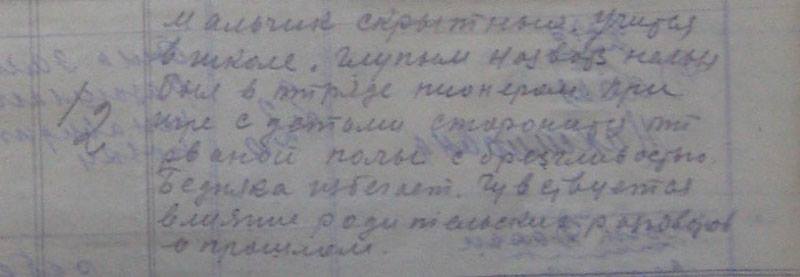 Мальчик скрытный. Учится
в школе. Глупым назвать нельзя
был в отряде пионером. При
игре с детьми сторонится от
рваной полы с брезгливостью.
12
Бедняка избегает. Чувствуется
влияние родительских разговоров
о прошлом.